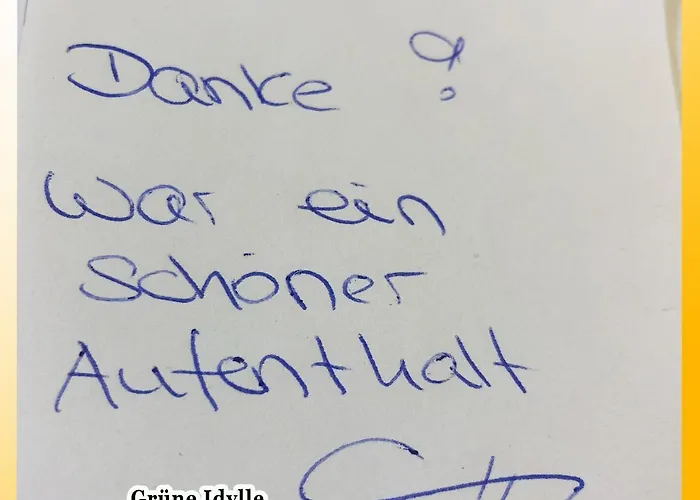 Danke !
War ein
schöner
Aufenthalt
Grüne Idylle